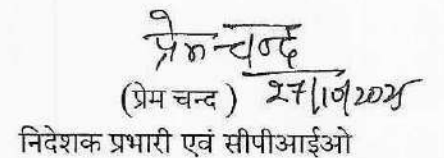 प्रेम चन्द
(प्रेम चन्द ) 27/10/2025
निदेशक प्रभारी एवं सीपीआईओ